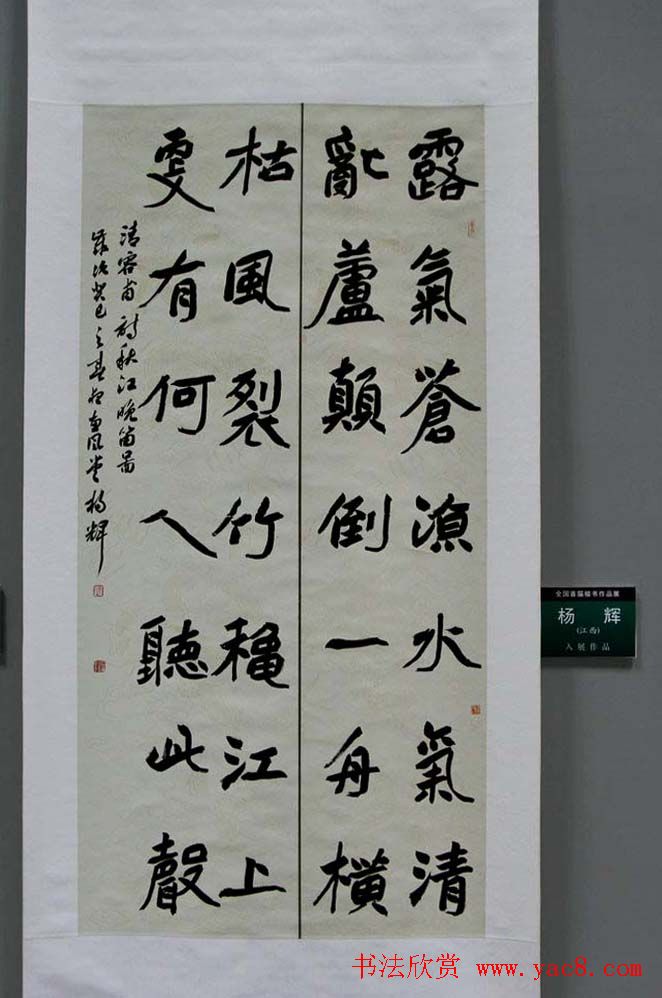 露氣蒼涼水氣清
亂蘆顛倒一舟橫
枯風裂竹穐江上
更有何人聽此聲
清 容甫詩秋江晚笛圖
歲次癸巳之春 楊輝
全国首届楷书作品展
杨 辉
(江西)
入展作品
书法欣赏 www.yac8.com